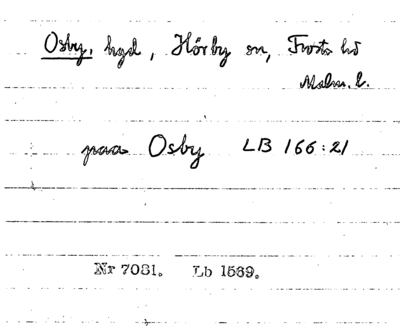 Osby, hgd, Hörby sn, Frosta hd
Malm. l.
paa Osby LB 166:21
Nr 7081. Lb 1569.